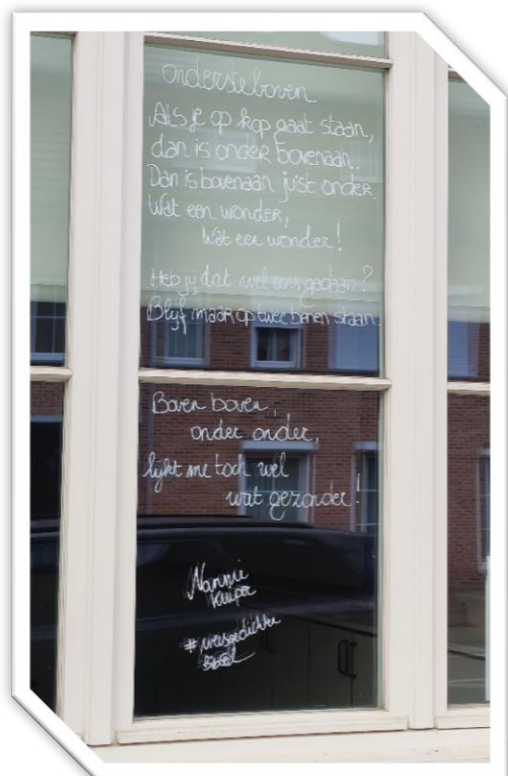 ondersteboven
Als je op kop gaat staan,
dan is onder bovenaan.
Dan is bovenaan juist onder.
Wat een wonder,
Wat een wonder!
Heb jij dat wel eens gedaan?
Blijf maar op twee benen staan.
Boven boven,
onder onder,
lijkt me toch wel
wat gezonder!
Nannie
Kuiper